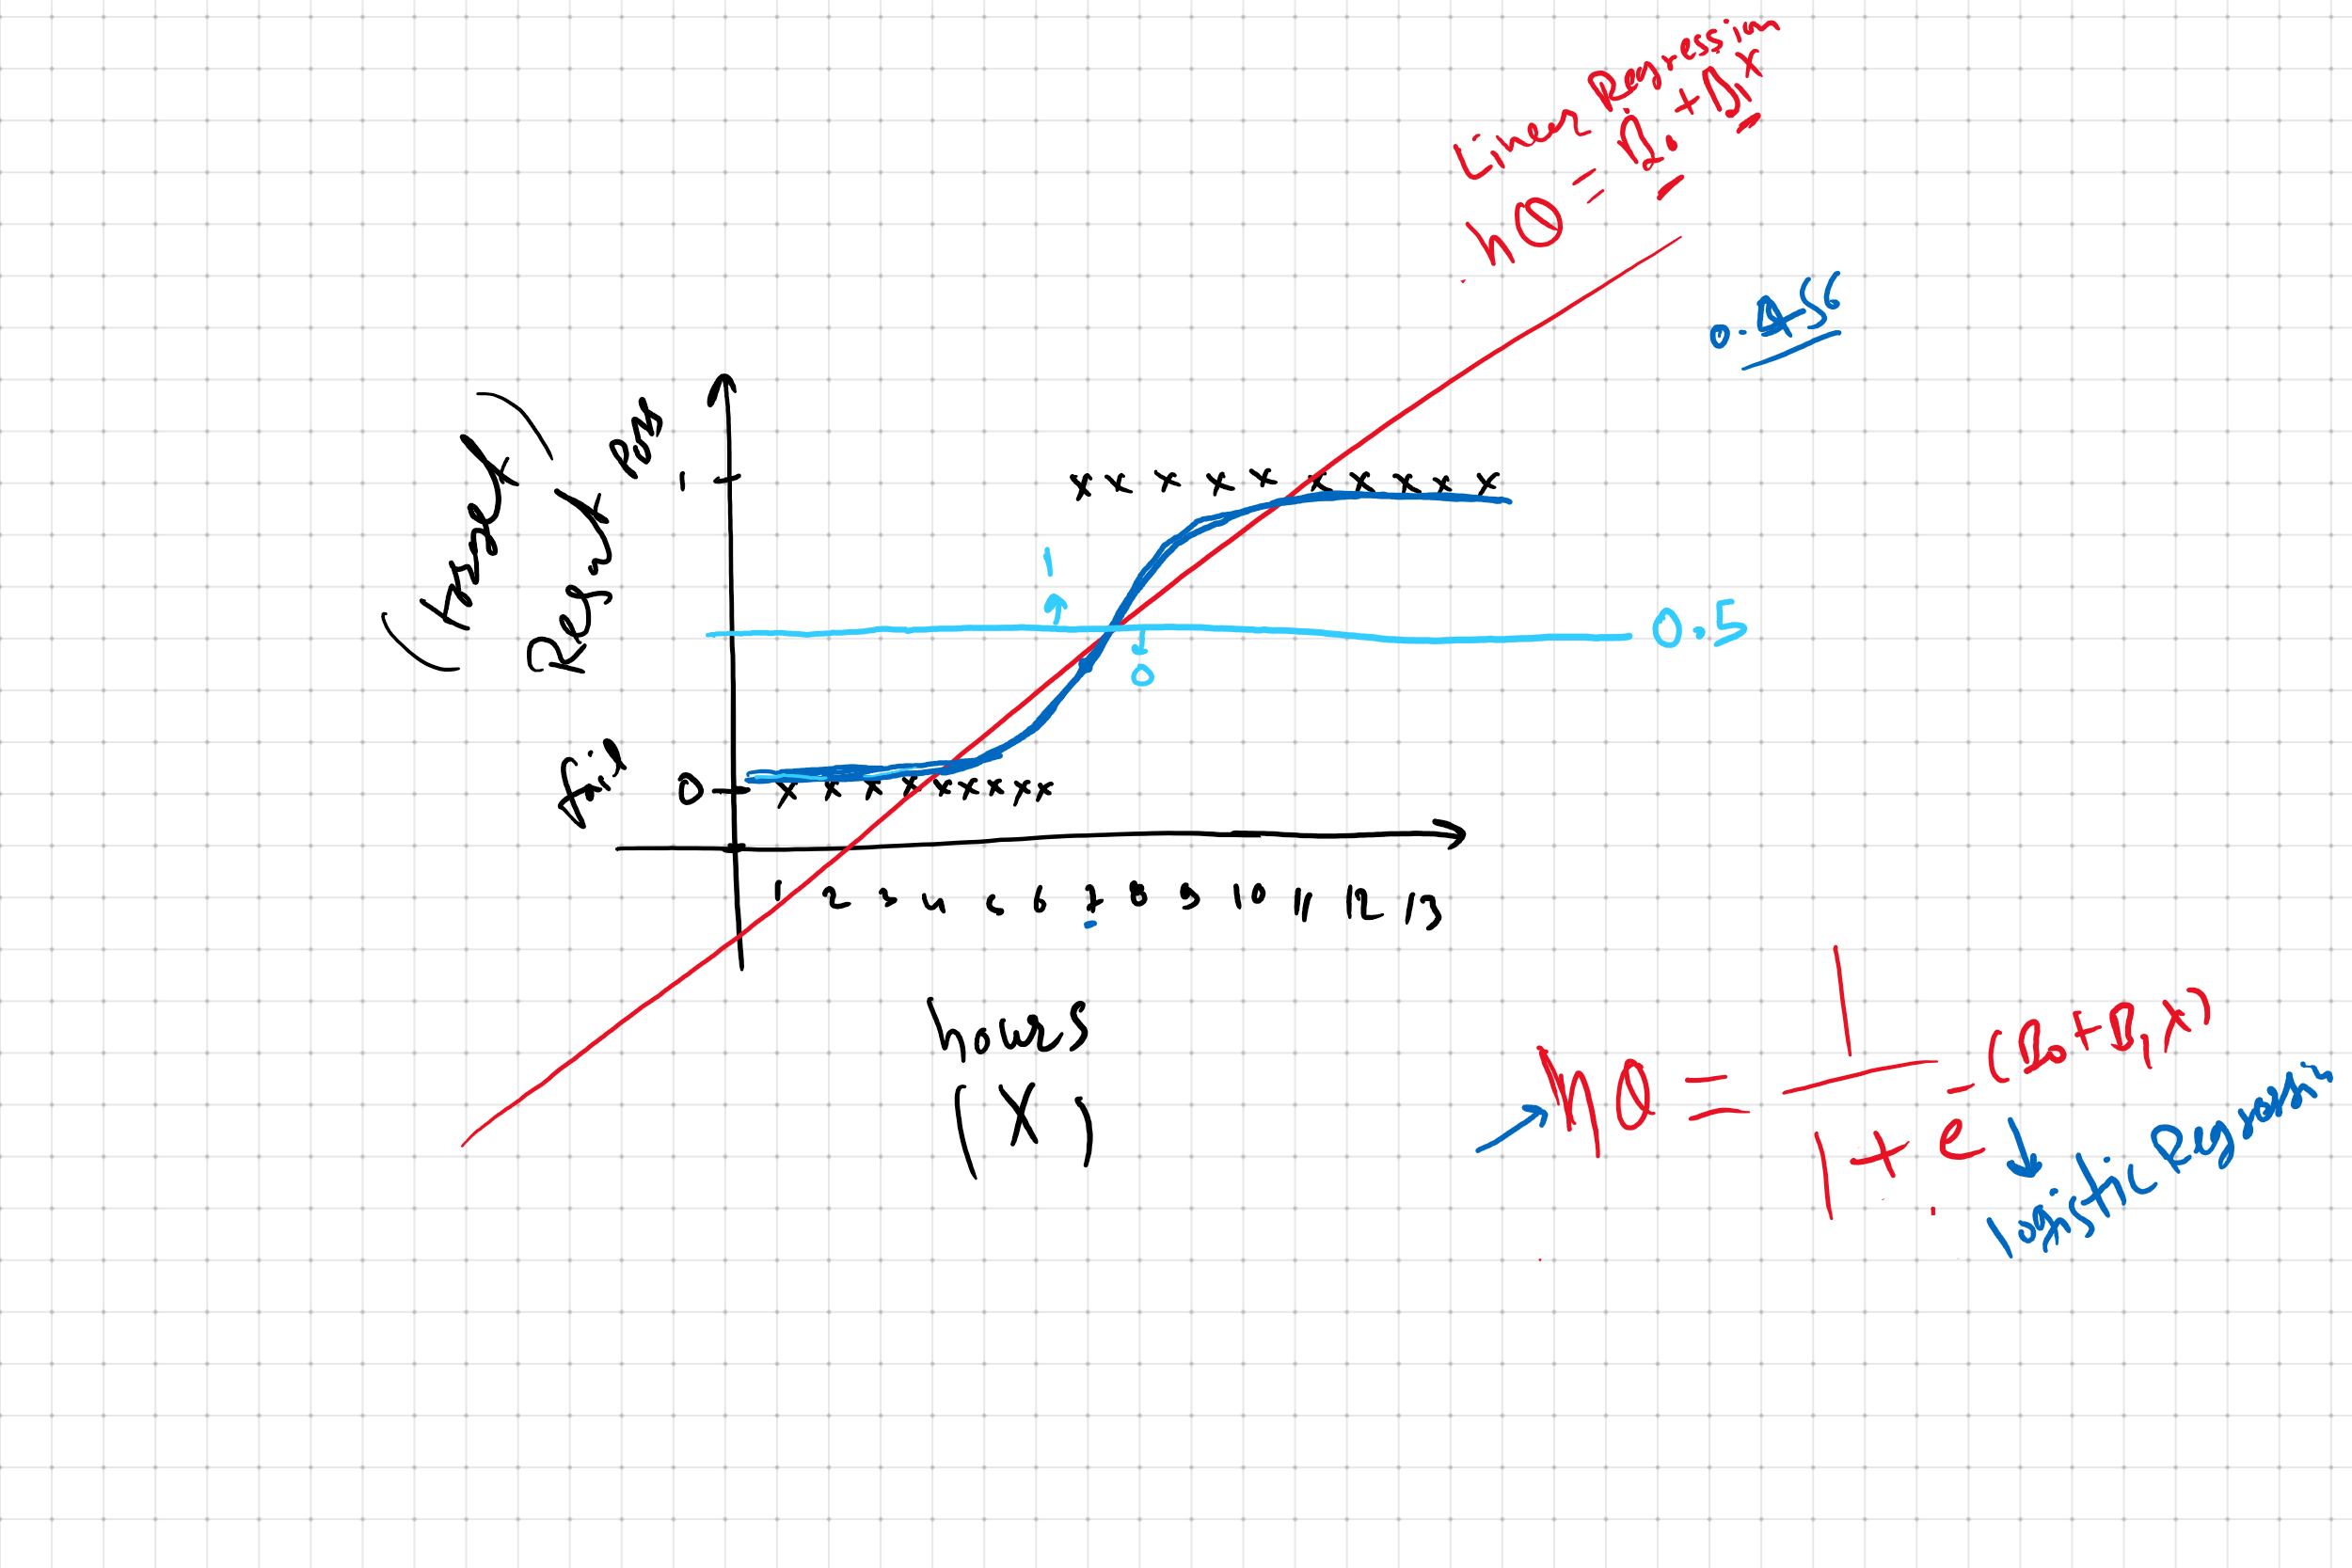 Linear Regression
hθ = β₀ + β₁x
0.456
(Target)
Result
Pass
1
1
0.5
0
fail
0
1 2 3 4 5 6 7 8 9 10 11 12 13
hours
(X)
hθ = 1 / 1 + e -(β₀+β₁x)
logistic Regression